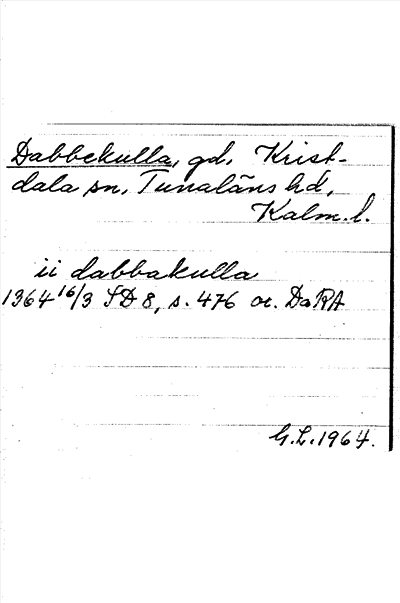 Dabbekulla, gd, Krist-
dala sn, Tunaläns hd,
Kalm. l.
ii dabbakulla
1364 16/3 SD 8, s. 476 or. DaRA
G.L. 1964.